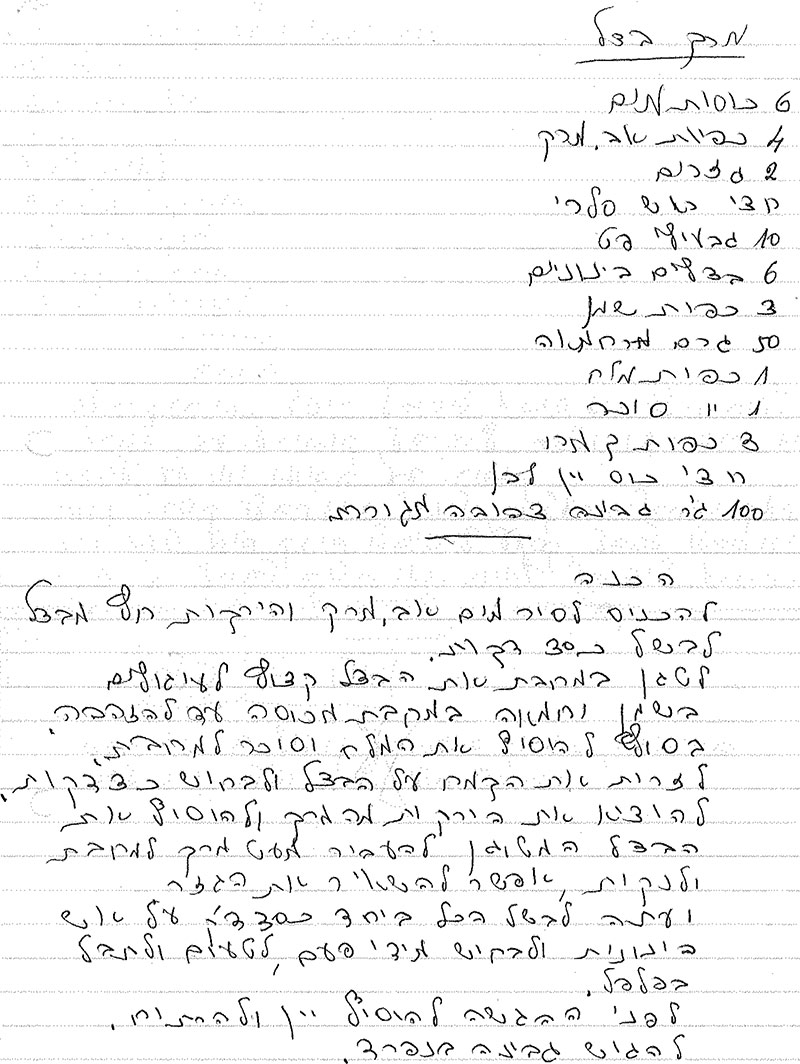 מרק בצל
6 כוסות מים
4 כפיות אב. מרק
2 גזרים
חצי ראש סלרי
10 גבעולי פט
6 בצלים בינונים
3 כפות שמן
50 גרם מרחמאה
1 כפית מלח
1 יי סוכר
3 כפות קמח
חצי כוס יין לבן
100 גר גבינה צהובה מגוררת
הכנה
להכניס לסיר מים אב. מרק והירקות חוץ מבצל
לבשל כ 30 דקות.
לטגן במחבת את הבצל קצוץ לעיגולים
בשמן וחמאה במחבת מכוסה עד להזהבה.
בסוף להוסיף את המלח וסוכר למחבת.
לזרות את הקמח על הבצל ולבחוש כ 3 דקות.
להוציא את הירקות מהמרק ולהוסיף את
הבצל המטוגן להעביר מעט מרק למחבת
ולנקות, אפשר להשאיר את הגזר
ועתה לבשל הכל ביחד כ 30 ד' על אש
בינונית ולבחוש מידי פעם, לטעום ולתבל
בפלפל.
לפני ההגשה להוסיף יין ולהרתיח.
להגיש גבינה בנפרד.